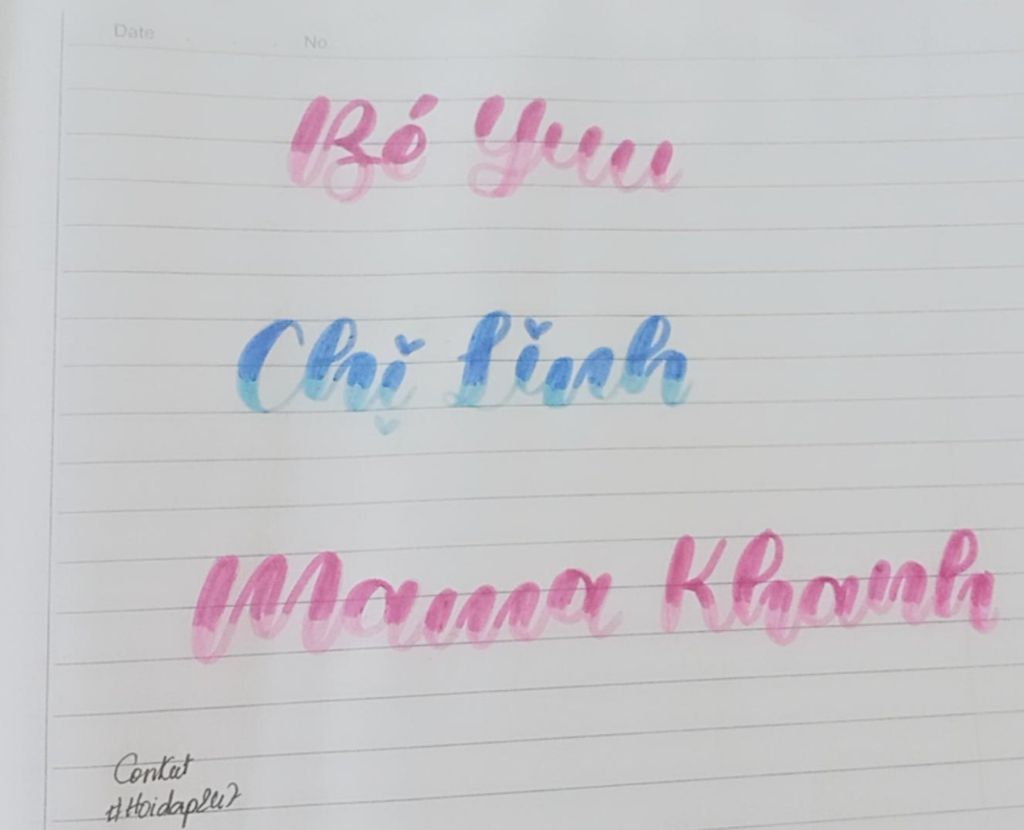 Date No
Bé Yuu
Chị Linh
Mama Khanh
Conkut
#Hoidap247